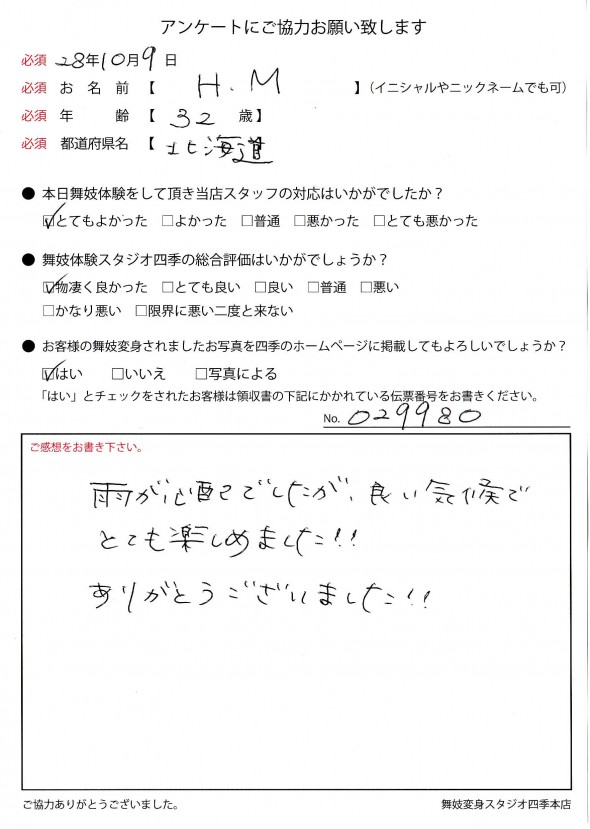 アンケートにご協力お願い致します
必須 28年10月9日
必須 お名前【 H.M 】（イニシャルやニックネームでも可）
必須 年齢【 32 歳】
必須 都道府県名【 北海道
● 本日舞妓体験をして頂き当店スタッフの対応はいかがでしたか？
☑とてもよかった □よかった □普通 □悪かった □とても悪かった
● 舞妓体験スタジオ四季の総合評価はいかがでしょうか？
☑物凄く良かった □とても良い □良い □普通 □悪い
□かなり悪い □限界に悪い二度と来ない
● お客様の舞妓変身されましたお写真を四季のホームページに掲載してもよろしいでしょうか？
☑はい □いいえ □写真による
「はい」とチェックをされたお客様は領収書の下記にかかれている伝票番号をお書きください。
No. 029980
ご感想をお書き下さい。
雨が心配でしたが、良い気候で
とても楽しめました!!
ありがとうございました!!
ご協力ありがとうございました。 舞妓変身スタジオ四季本店